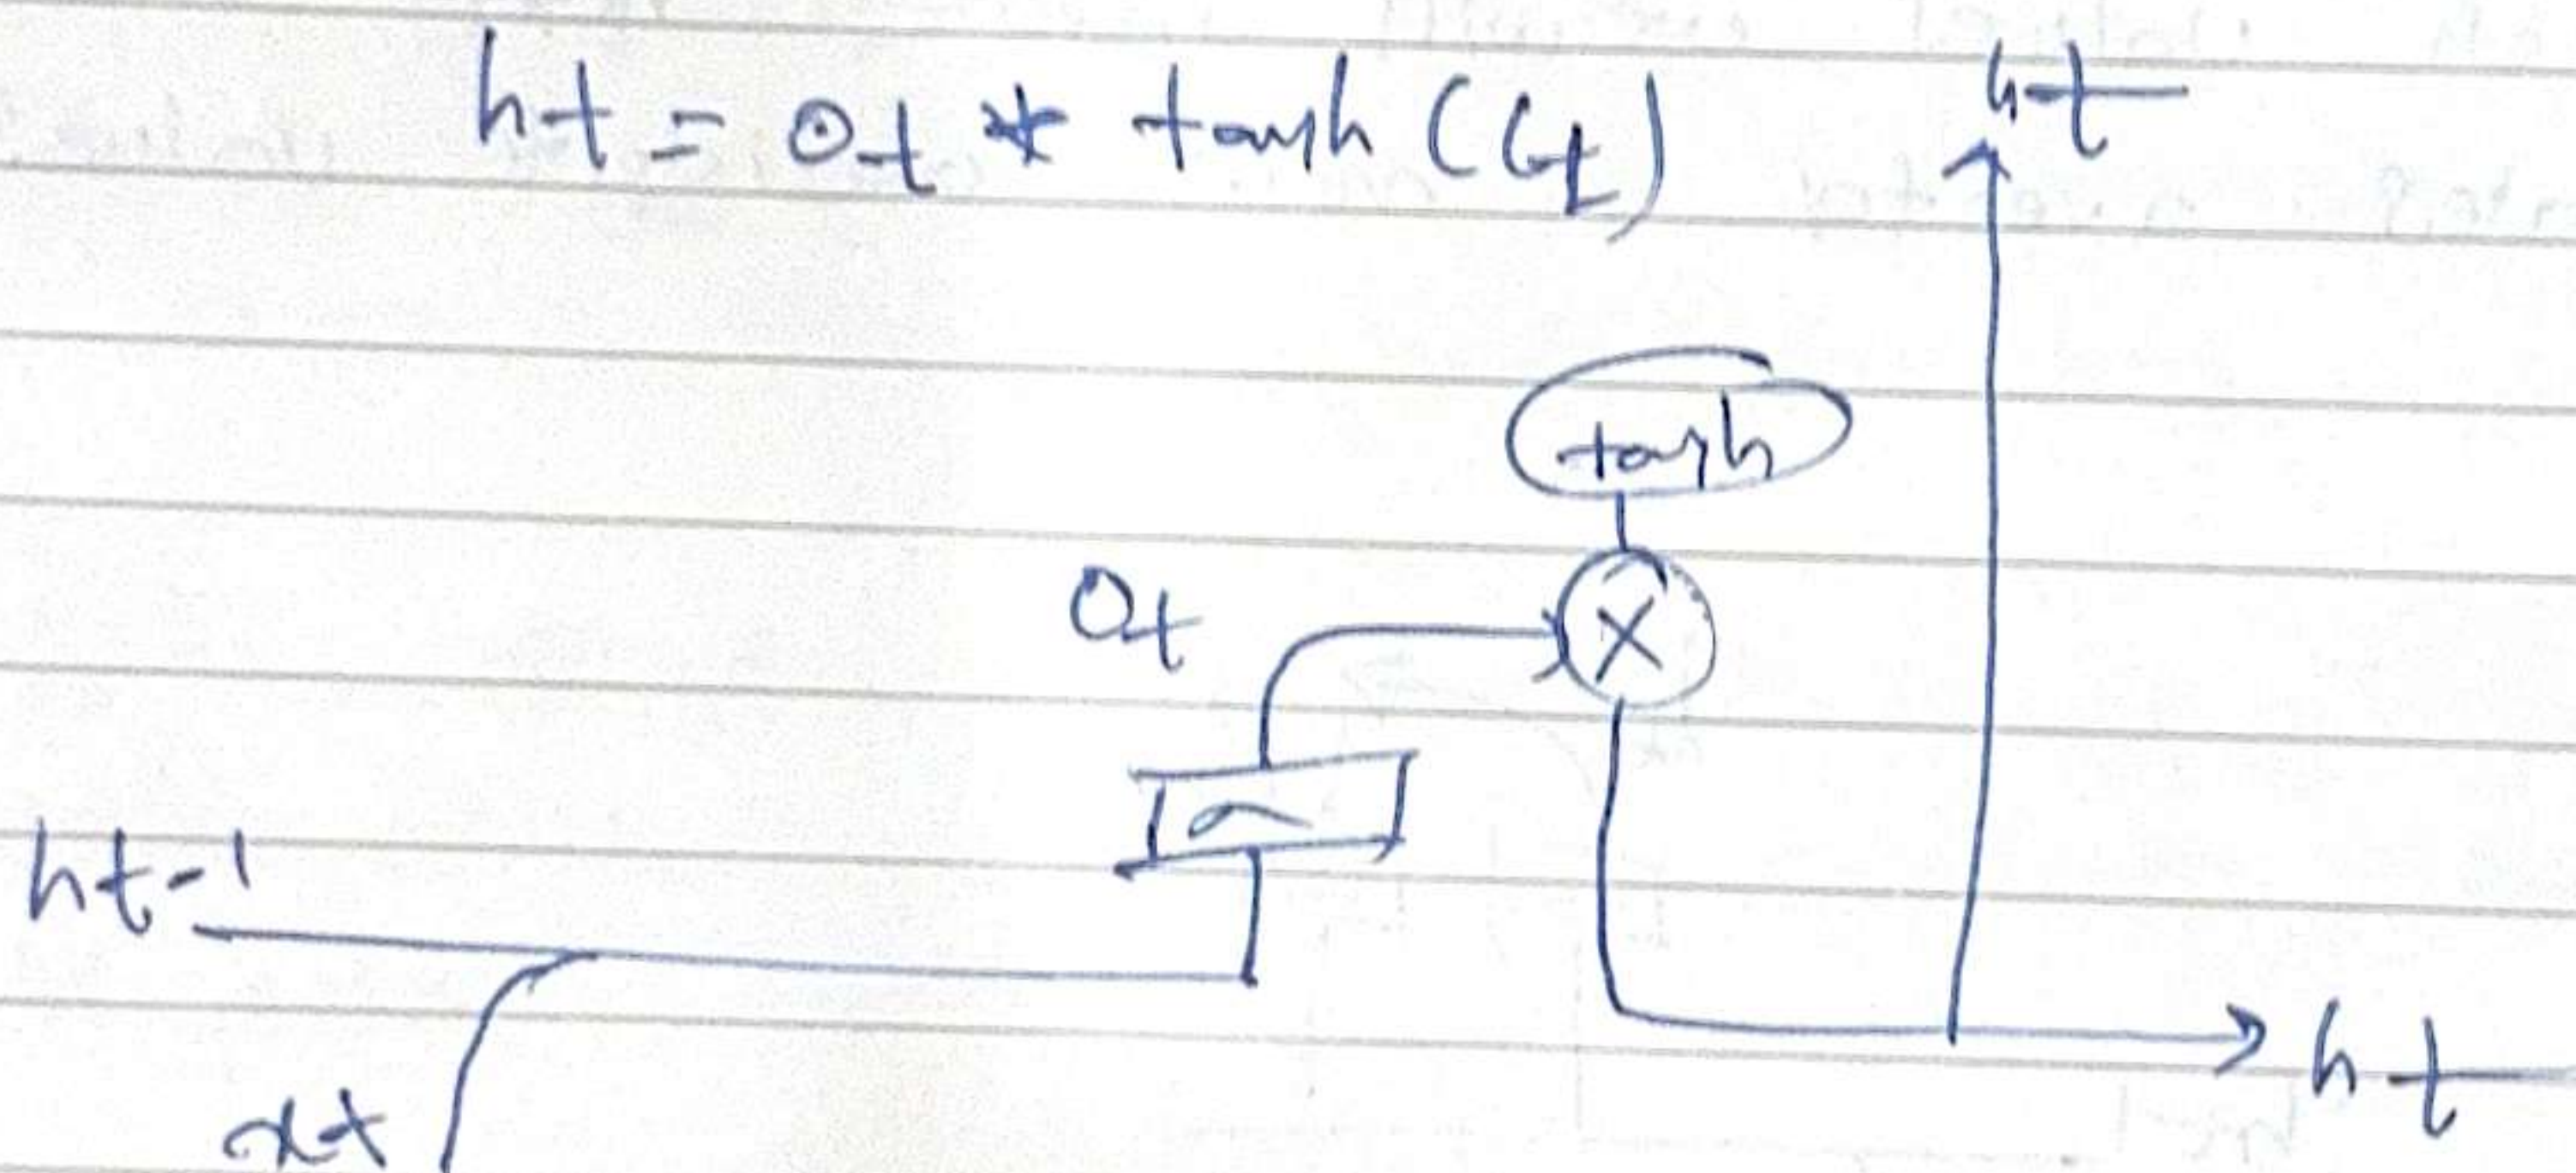 ht = Ot * tanh (Ct)
ht
tanh
Ot
X
σ
ht-1
ht
xt